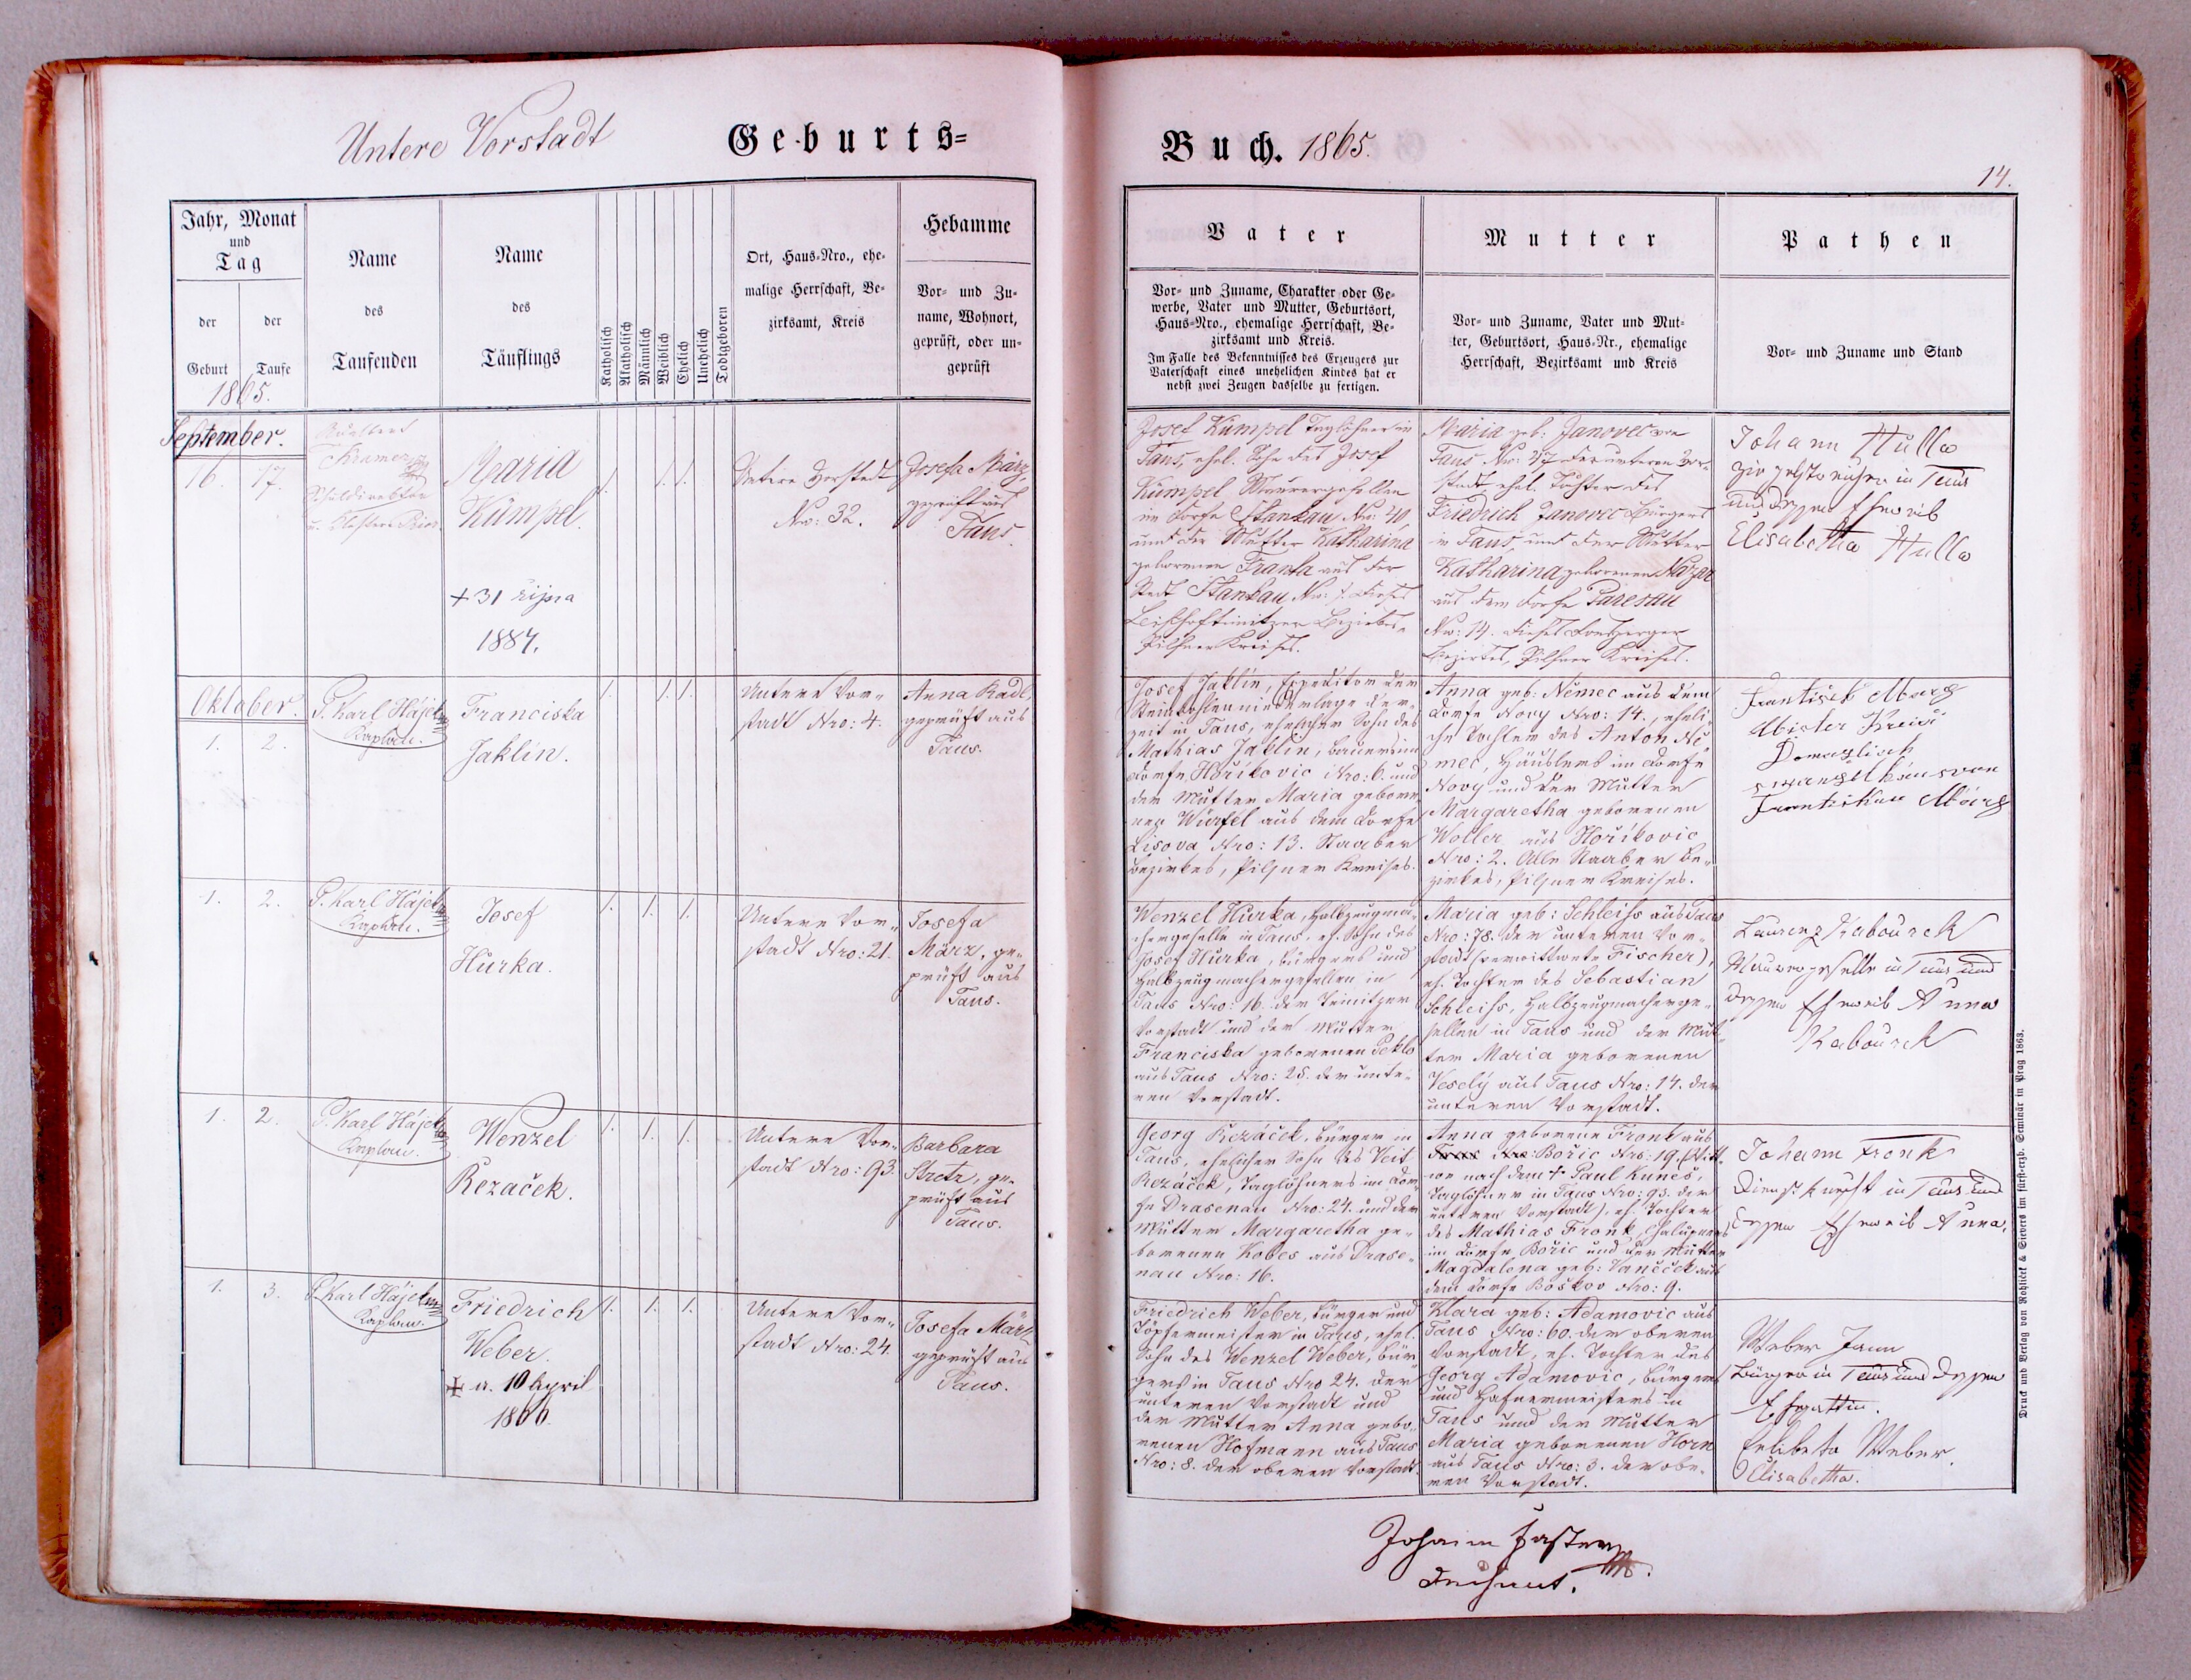 Untere Vorstadt
Geburts=
Buch. 1865.
14.
Jahr, Monat
und
Tag
der
Geburt
der
Taufe
1865.
Name
des
Taufenden
Name
des
Täuflings
Katholisch
Akatholisch
Männlich
Weiblich
Ehelich
Unehelich
Todtgeboren
Ort, Haus-Nro., ehe-
malige Herrschaft, Be-
zirksamt, Kreis
Hebamme
Vor- und Zu-
name, Wohnort,
geprüft, oder un-
geprüft
Vater
Vor- und Zuname, Charakter oder Ge-
werbe, Vater und Mutter, Geburtsort,
Haus-Nro., ehemalige Herrschaft, Be-
zirksamt und Kreis.
Im Falle des Bekenntnisses des Erzeugers zur
Vaterschaft eines unehelichen Kindes hat er
nebst zwei Zeugen dasselbe zu fertigen.
Mutter
Vor- und Zuname, Vater und Mut-
ter, Geburtsort, Haus-Nr., ehemalige
Herrschaft, Bezirksamt und Kreis
Pathen
Vor- und Zuname und Stand
September.
16. 17.
Kramer
Maria
Kümpel.
+ 31 října
1884.
1. 1. 1.
Untere Vorstadt
Nro: 32.
Josefa März,
geprüft aus
Taus.
Josef Kümpel Taglöhner in
Taus, ehel. Sohn des Josef
Kümpel Maurergesellen
im Dorfe Stankau Nro: 40,
und der Mutter Katharina
geborenen Franta aus der
Stadt Stankau Nro:
Bischofteinitzer Bezirkes,
Pilsner Kreises.
Maria geb: Janovec
Taus Nro: 27 der unteren Vor-
stadt ehel. Tochter des
Friedrich Janovec Bürgers
in Taus, und der Mutter
Katharina geborenen
aus dem Dorfe Paresau
Nro: 14.
Bezirkes, Pilsner Kreises.
Johann Hulla
in Taus
und dessen Eheweib
Elisabetha Hulla
Oktober.
1. 2.
P. Karl Hájek
Kaplan.
Franciska
Jaklin.
1. 1. 1.
Untere Vor-
stadt Nro: 4.
Anna Kadl
geprüft aus
Taus.
Josef Jaklin, Expeditor der
Steinkohlenniederlage der-
zeit in Taus, ehelicher Sohn des
Mathias Jaklin, Bauers im
Dorfe Hořikovic Nro: 6. und
der Mutter Maria gebore-
nen Würfel aus dem Dorfe
Lisova Nro: 13. Staaber
Bezirkes, Pilsner Kreises.
Anna geb: Němec aus dem
Dorfe Novy Nro: 14., eheli-
che Tochter des Anton Ně-
mec, Häuslers im Dorfe
Novy und der Mutter
Margaretha geborenen
Woller aus Hořikovic
Nro: 2. Alle Staaber Be-
zirkes, Pilsner Kreises.
1. 2.
P. Karl Hájek
Kaplan.
Josef
Hurka.
1. 1. 1.
Untere Vor-
stadt Nro: 21.
Josefa
März, ge-
prüft aus
Taus.
Wenzel Hurka, Halbzeugma-
chergeselle in Taus, eh. Sohn des
Josef Hurka, Bürgers und
Halbzeugmachergesellen in
Taus Nro: 16. der Teinitzer
Vorstadt und der Mutter
Franciska geborenen Peklo
aus Taus Nro: 25. der unte-
ren Vorstadt.
Maria geb: Schleiss aus Taus
Nro: 78. der unteren Vor-
stadt (verwittwete Fischer),
eh. Tochter des Sebastian
Schleiss, Halbzeugmacherge-
sellen in Taus und der Mut-
ter Maria geborenen
Veselý aus Taus Nro: 14. der
unteren Vorstadt.
Laurenz Kabourek
Maurergeselle in Taus und
dessen Eheweib Anna
Kabourek
1. 2.
P. Karl Hájek
Kaplan.
Wenzel
Řezaček.
1. 1. 1.
Untere Vor-
stadt Nro: 93.
Barbara
Stretz, ge-
prüft aus
Taus.
Georg Řezáček, Bürger in
Taus, ehelicher Sohn des Veit
Řezáček, Taglöhners im Dor-
fe Drasenau Nro: 24. und der
Mutter Margaretha ge-
borenen Kobes aus Drase-
nau Nro: 16.
Anna geborene Fronk aus
Bořic Nro: 19. (Witt-
we nach dem + Paul Kuneš,
Taglöhner in Taus Nro: 93. der
unteren Vorstadt), eh. Tochter
des Mathias Fronk, Chalupners
im Dorfe Bořic und der Mutter
Magdalena geb: Vaněček aus
dem Dorfe Boškov Nro: 9.
Johann Fronk
Dienstknecht in Taus und
dessen Eheweib Anna.
1. 3.
P. Karl Hájek
Kaplan.
Friedrich
Weber.
+ a. 10 April
1866.
1. 1. 1.
Untere Vor-
stadt Nro: 24.
Josefa März
geprüft aus
Taus.
Friedrich Weber, Bürger und
Töpfermeister in Taus, ehel.
Sohn des Wenzel Weber, Bür-
gers in Taus Nro 24. der
unteren Vorstadt und
der Mutter Anna gebo-
renen Hofmann aus Taus
Nro: 8. der oberen Vorstadt.
Klara geb: Adamovic aus
Taus Nro: 60. der oberen
Vorstadt, eh. Tochter des
Georg Adamovic, Bürgers
und Hafnermeisters in
Taus und der Mutter
Maria geborenen Horn
aus Taus Nro: 3. der obe-
ren Vorstadt.
Weber
Bürger in Taus und dessen
Ehgattin.
Weber.
Elisabetha.
Johann
Dechant.
Druck und Verlag von Rohliček & Sievers im fürst-erzb. Seminär in Prag 1863.